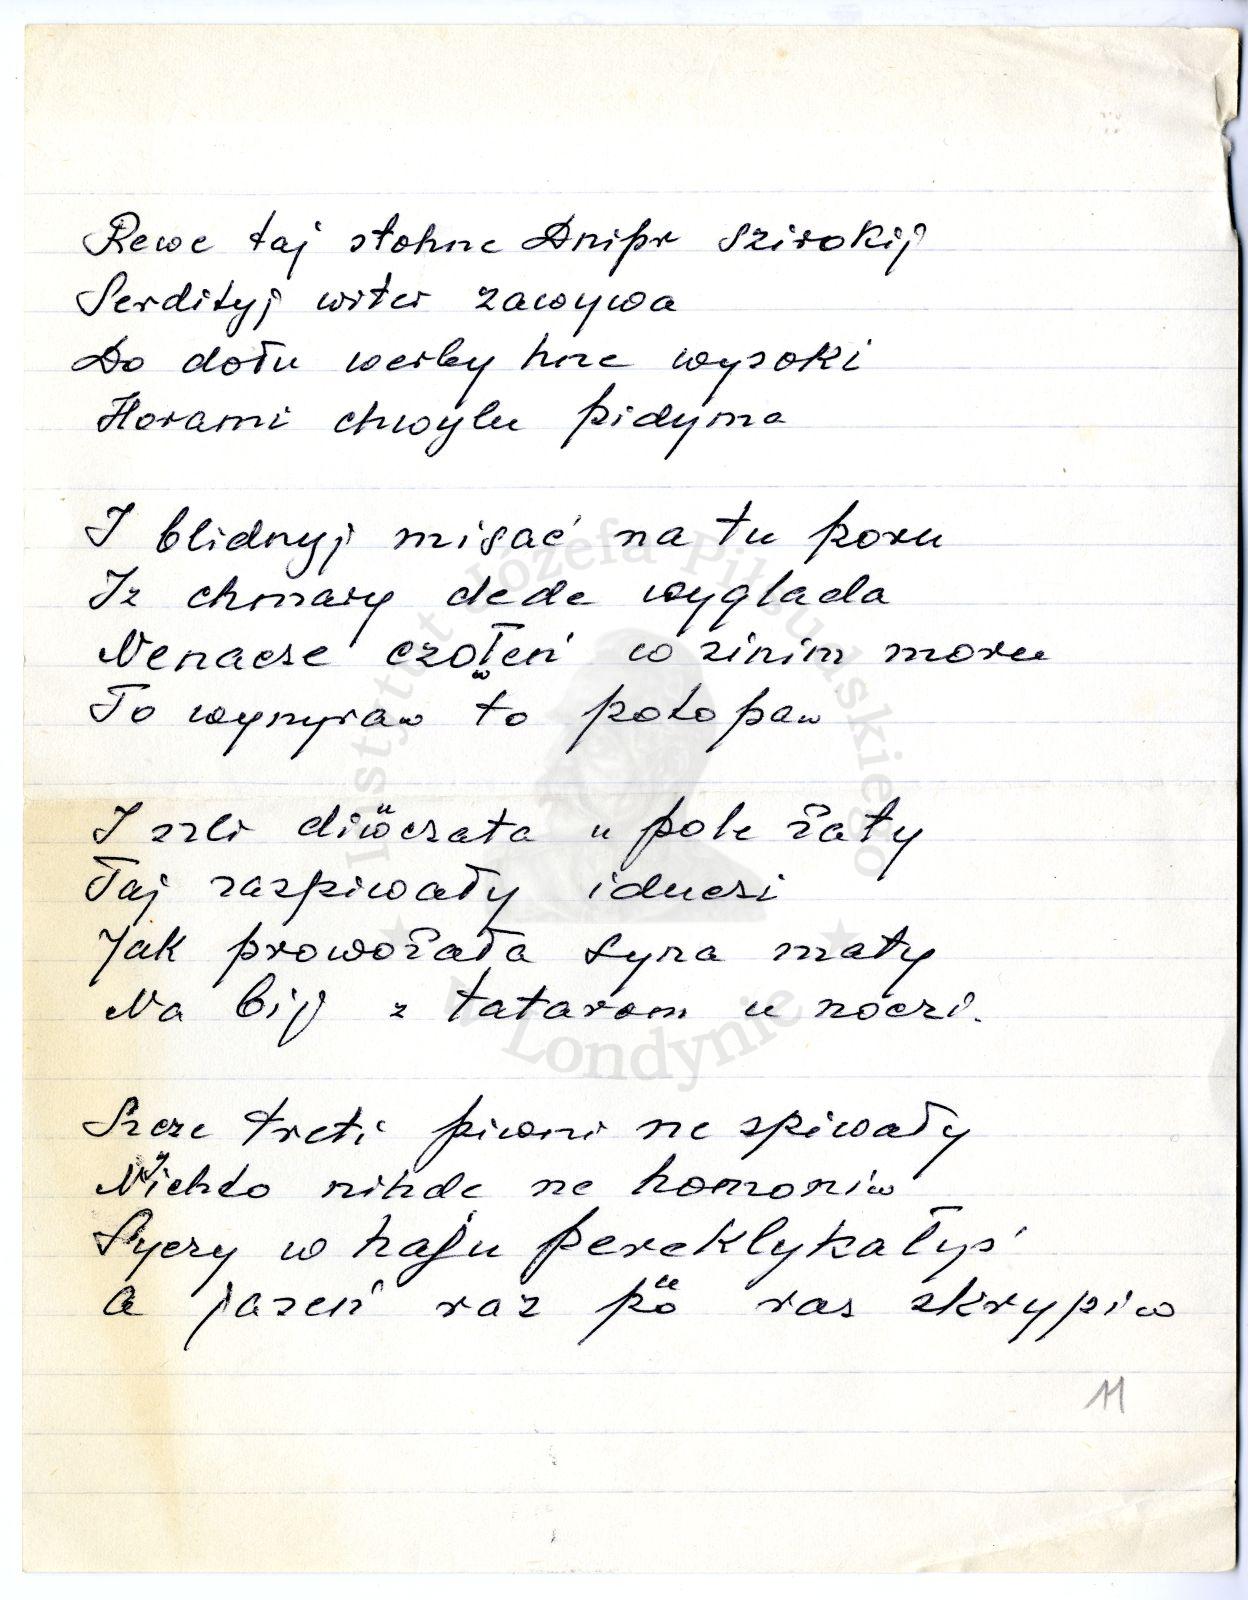 Rewe taj stohne Dnipr szirokij
Serdityj witer zawywa
Do dołu werby hne wysoki
Horami chwylu pidyma
I blidnyj misać na tu poru
Iz chmary dede wyglada
Nenacze czołeń w sinim moru
To wynyraw w to potopaw
I szli diẅczata u pole żaty
Taj zaspiwały iduczi
Jak prowożała syna maty
Na bij z tatarom u noczi.
Szcze treti piwni ne spiwały
Nichto nihde ne homoniw
Syczy w haju pereklykałyś
A jaseń raz pö ras skrypiw
11
Instytut Józefa Piłsudskiego
w Londynie